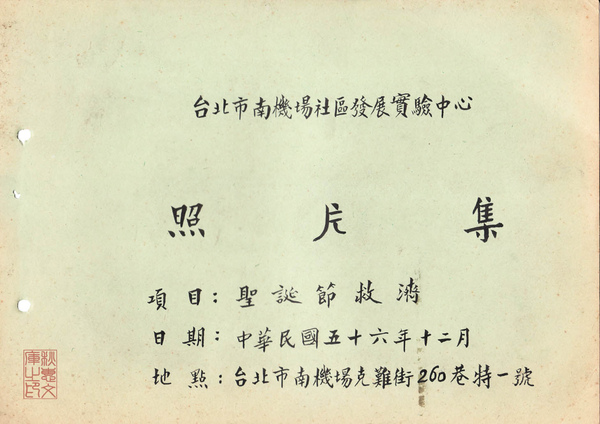 台北市南機場社區發展實驗中心
照片集
項目：聖誕節救濟
日期：中華民國五十六年十二月
地點：台北市南機場克難街260巷特一號